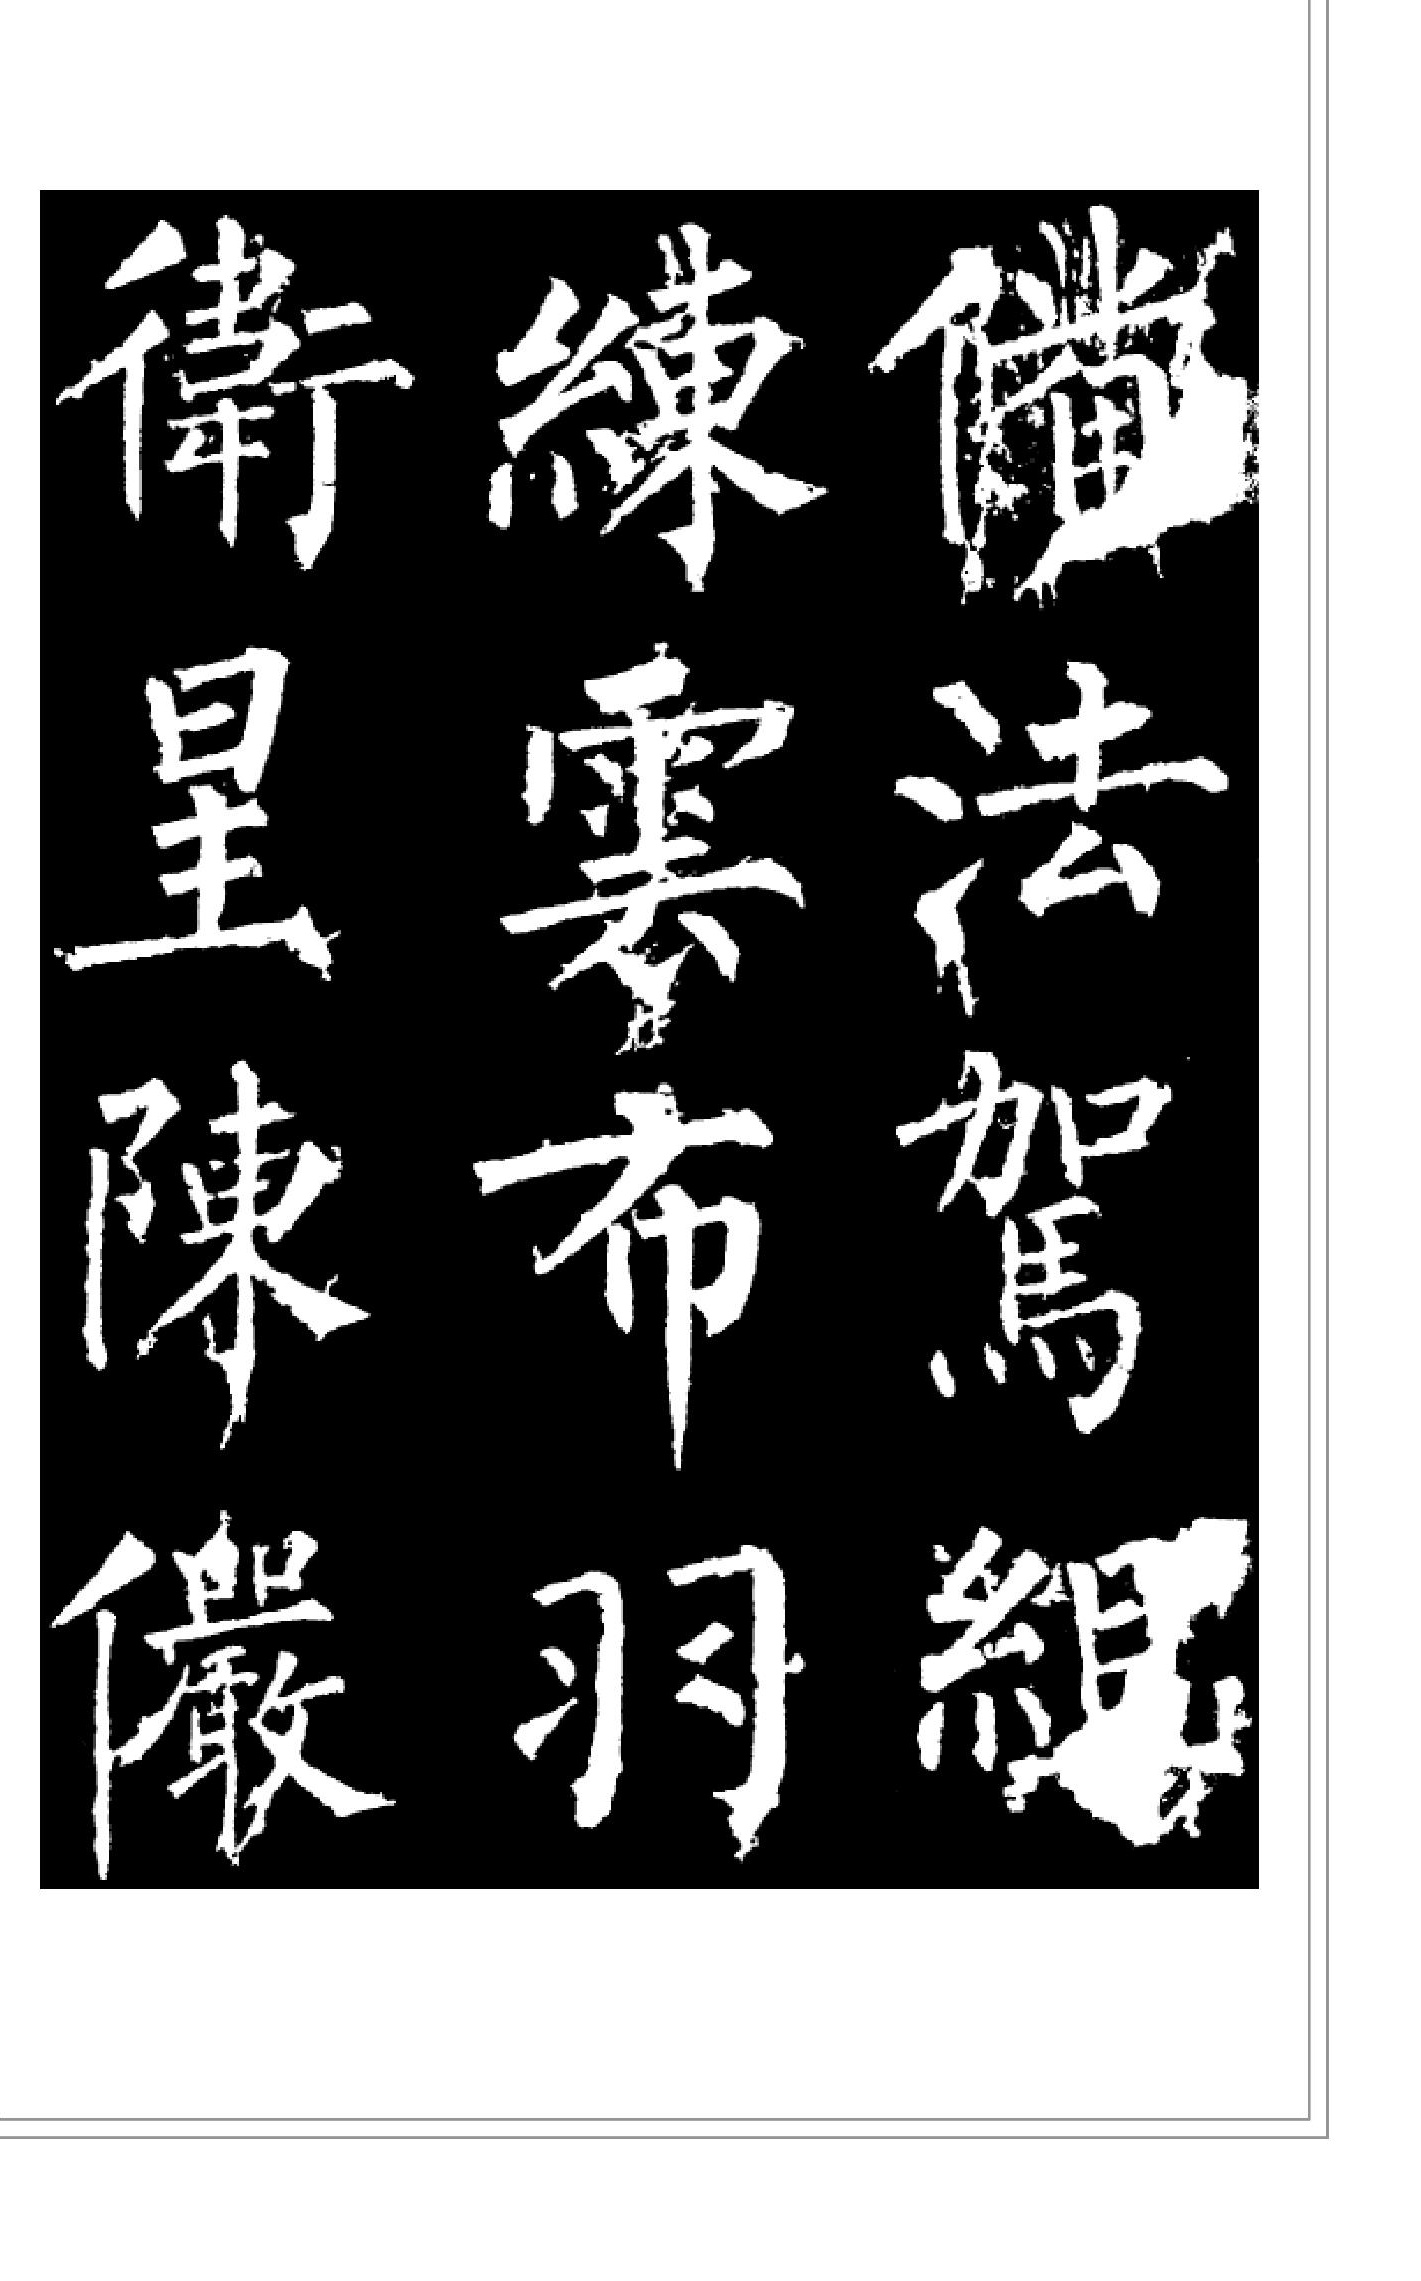 備法駕組
練雲布羽
衛星陳儼